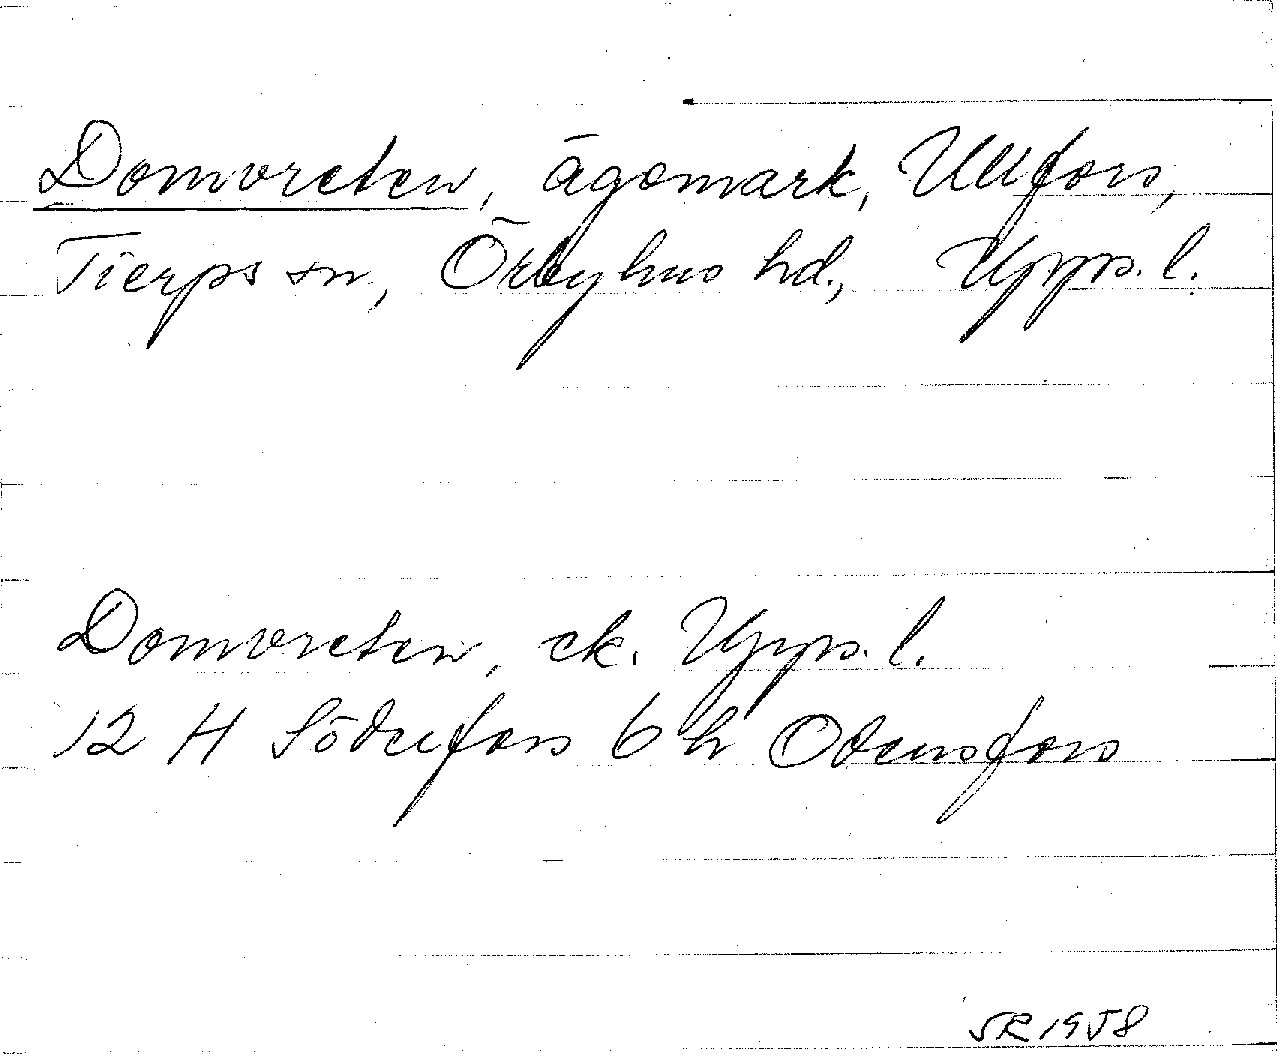 Domvreten, ägomark, Ullfors,
Tierps sn, Örbyhus hd., Upps. l.
Domvreten, ek. Upps. l.
12 H Söderfors 6 h Odensfors
SR 1958